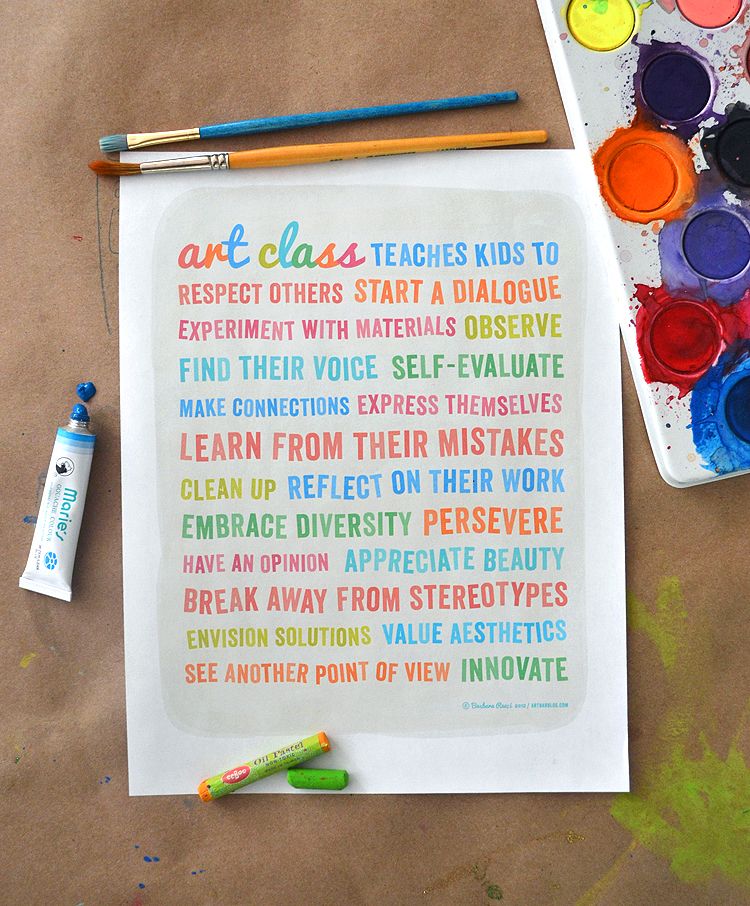 art class TEACHES KIDS TO
RESPECT OTHERS START A DIALOGUE
EXPERIMENT WITH MATERIALS OBSERVE
FIND THEIR VOICE SELF-EVALUATE
MAKE CONNECTIONS EXPRESS THEMSELVES
LEARN FROM THEIR MISTAKES
CLEAN UP REFLECT ON THEIR WORK
EMBRACE DIVERSITY PERSEVERE
HAVE AN OPINION APPRECIATE BEAUTY
BREAK AWAY FROM STEREOTYPES
ENVISION SOLUTIONS VALUE AESTHETICS
SEE ANOTHER POINT OF VIEW INNOVATE
© Barbara Rucci 2012 / ARTBARBLOG.COM
Marie's
GOUACHE COLOUR
Oil Pastel
NON-TOXIC